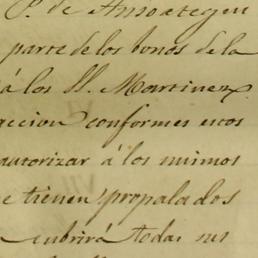 P. de Ansoategui
parte de los bonos de la
á los SS. Martinez
accion conformes estos
autorizar á los mismos
e tienen propalados
cubrirá todas sus